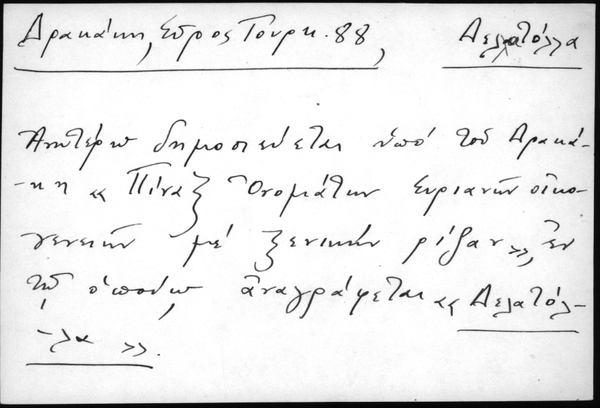 Δρακάκη, Σύρος Τουρκ. 88, Δελατόλλα
Ἀνωτέρω δημοσιεύεται ὑπό τοῦ Δρακά-
-κη «Πίναξ Ὀνομάτων Συριανῶν οἰκο-
γενειῶν μέ ξενικήν ρίζαν», ἐν
τῷ ὁποίῳ, ἀναγράφεται «Δελατόλ-
-λα».